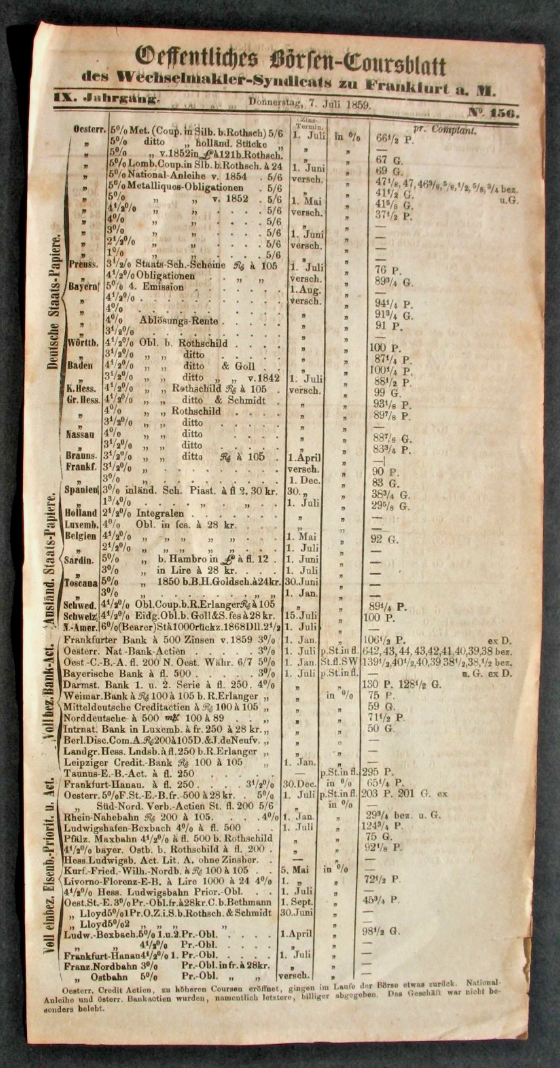 Oeffentliches Börsen-Coursblatt
des Wechselmakler-Syndicats zu Frankfurt a. M.
IX. Jahrgang. Donnerstag, 7. Juli 1859. No. 156.
Zins-Termin. pr. Comptant.
Deutsche Staats-Papiere.
Oesterr. 5% Met. (Coup. in Silb. b. Rothsch) 5/6 1. Juli in % 66½ P.
" 5% ditto " holländ. Stücke " " —
" 5% " v. 1852 in £ à 121 b. Rothsch. " " 67 G.
" 5% Lomb. Coup. in Slb. b. Rothsch. à 24 1. Juni " 69 G.
" 5% National-Anleihe v. 1854 . 5/6 versch. "
" 5% Metalliques-Obligationen . 5/6 " " 41½ G. u.G.
" 5% " " v. 1852 . 5/6 1. Mai " 41⅝ G.
" 4½% " " 5/6 versch. " 37½ P.
" 4% " " 5/6 " " —
" 3% " " 5/6 1. Juni " —
" 2½% " " 5/6 versch. " —
" 1% " " 5/6 " " —
Preuss. 3½% Staats-Sch.-Scheine Rg à 105 1. Juli " 76 P.
" 4½% Obligationen " " versch. " 89¾ G.
Bayern 5% 4. Emission 1. Aug. " —
" 4½% . versch. " 94¼ P.
" 4% " " 91¾ G.
" 4% Ablösungs-Rente . " " 91 P.
" 3½% " " —
Württb. 4½% Obl. b. Rothschild " " 100 P.
" 3½% " " ditto " " 87¼ P.
Baden 4½% " " ditto & Goll " " 100¼ P.
" 3½% " " ditto " " v. 1842 1. Juli " 88½ P.
K. Hess. 4½% " " Rothschild Rg à 105 versch. " 99 G.
Gr. Hess. 4½% " " ditto & Schmidt " " 93⅛ P.
" 4% " " Rothschild " " 89⅞ P.
" 3½% " " ditto " " —
Nassau 4½% " " ditto " " 88⅞ G.
" 3½% " " ditto " " 83¾ P.
Brauns. 3½% " " ditto Rg à 105 1. April " —
Frankf. 3½% " versch. " 90 P.
" 3% " 1. Dec. " 83 G.
Ausländ. Staats-Papiere.
Spanien 3% inländ. Sch. Piast. à fl 2. 30 kr. 30. " " 38¾ G.
" 1¾% 1. Juli " 29⅝ G.
Holland 2½% Integralen " " —
Luxemb. 4% Obl. in fcs. à 28 kr. " " —
Belgien 4½% " " " " " 1. Mai " 92 G.
" 2½% " " " " " 1. Juli " —
Sardin. 5% " b. Hambro in £ à fl. 12 . 1. Juni " —
" 3% " in Lire à 28 kr. 1. Juli " —
Toscana 5% " 1850 b.B.H. Goldsch. à 24 kr. 30. Juni " —
" 3% " " 1. Jan. " —
Schwed. 4½% Obl. Coup. b. R. Erlanger Rg à 105 " " 89¼ P.
Schweiz 4½% Eidg. Obl. b. Goll & S. fcs à 28 kr. 15. Juli " 100 P.
N.-Amer. 6% (Bearer) St à 1000 rückz. 1868 Dll. 2½ 1. Juli " —
Voll bez. Bank-Act.
Frankfurter Bank à 500 Zinsen v. 1859 3% 1. Jan. " 106½ P. ex D.
Oesterr. Nat-Bank-Actien . 3% 1. Juli p. St. in fl. 642, 43, 44, 43, 42, 41, 40, 39, 38 bez.
Oest.-C.-B.-A. fl. 200 N. Oest. Währ. 6/7 5% 1. Jan. St. fl. SW 139½, 40½, 40, 39 38½, 38, ½ bez.
Bayerische Bank à fl. 500 . 3% 1. Juli p. St. in fl. — u. G. ex D.
Darmst. Bank 1. u. 2. Serie à fl. 250. 4% " " 130 P. 128½ G.
Weimar. Bank à Rg 100 à 105 b. R. Erlanger " " in % 75 P.
Mitteldeutsche Creditactien à Rg 100 à 105 " " " 59 G.
Norddeutsche à 500 mk 100 à 89 . " " " 71½ P.
Intrnat. Bank in Luxemb. à fr. 250 à 28 kr. " " " 50 G.
Berl. Disc. Com. A. Rg 200 à 105 D. & J. de Neufv. " " " —
Landgr. Hess. Lndsb. à fl. 250 b. R. Erlanger " " " —
Leipziger Credit-Bank Rg 100 à 105 1. Jan. " —
Voll einbez. Eisenb.-Priorit. u. Act.
Taunus-E.-B.-Act. à fl. 250 — p. St. in fl. 295 P.
Frankfurt-Hanau. à fl. 250 . 3½% 30. Dec. in % 65¼ P.
Oesterr. 5% F. St.-E.-B. fr. 500 à 28 kr. 5% 1. Juli p. St. in fl. 203 P. 201 G. ex
" Süd-Nord. Verb.-Actien St. fl. 200 5/6 " in % —
Rhein-Nahebahn Rg 200 à 105. . 4% 1. Jan. " 29¾ bez. u. G.
Ludwigshafen-Bexbach 4% à fl. 500 1. Juli " 124¾ P.
Pfälz. Maxbahn 4½% à fl. 500 b. Rothschild " " 75 G.
4½% bayer. Ostb. b. Rothschild à fl. 200 . " " 92⅛ P.
Hess. Ludwigsb. Act. Lit. A. ohne Zinsber. — " —
Kurf.-Fried.-Wilh.-Nordb. à Rg 100 à 105 5. Mai in % —
Livorno-Florenz-E-B. à Lire 1000 à 24 4% 1. " " 72½ P.
4½% Hess. Ludwigsbahn Prior.-Obl. 1. Juli " —
Oest. St.-E. 3% Pr.-Obl. fr. à 28 kr. C. b. Bethmann 1. Sept. " 45¾ P.
" Lloyd 5% 1 Pr. O. Z. i. S. b. Rothsch. & Schmidt 30. Juni " —
" Lloyd 5% 2 " " " " " —
Ludw.-Bexbach. 5% 1. u. 2. Pr.-Obl. 1. April " 98½ G.
" " 4½% Pr.-Obl. " " —
Frankfurt-Hanau 4½% 1. Pr.-Obl. 1. Juli " —
Franz. Nordbahn 3% Pr.-Obl. in fr. à 28 kr. " " —
" Ostbahn 5% Pr.-Obl. " " versch. " —
Oesterr. Credit Actien, zu höheren Coursen eröffnet, gingen im Laufe der Börse etwas zurück. National-
Anleihe und österr. Bankactien wurden, namentlich letztere, billiger abgegeben. Das Geschäft war nicht be-
sonders belebt.